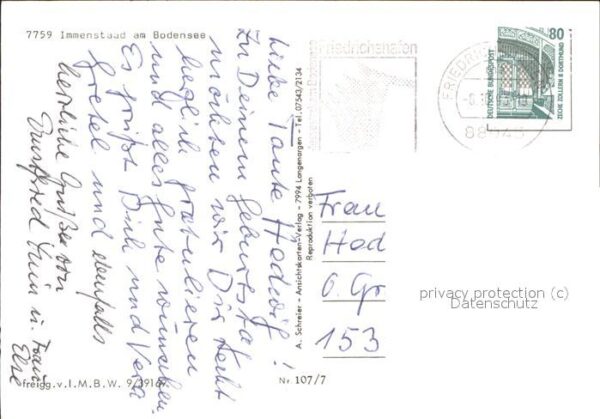 7759 Immenstaad am Bodensee
Liebe Tante Hedwig!
Zu Deinem Geburtstag
möchten wir Dir recht
herzlich gratulieren
und alles gute wünschen.
Es grüßt Dich und Vera
Gretel und ebenfalls
herzliche Grüße von
u. Frau
Else
freigg.v.I.M.B.W. 9/39169
A. Schreier - Ansichtskarten-Verlag - 7994 Langenargen - Tel. 07543/2134
Reproduction verboten
Nr. 107/7
Friedrichshafen
FRIEDRICH
88045
80
DEUTSCHE BUNDESPOST
ZECHE ZOLLERN II DORTMUND
Frau
Hed
O. Gr
153
privacy protection (c)
Datenschutz